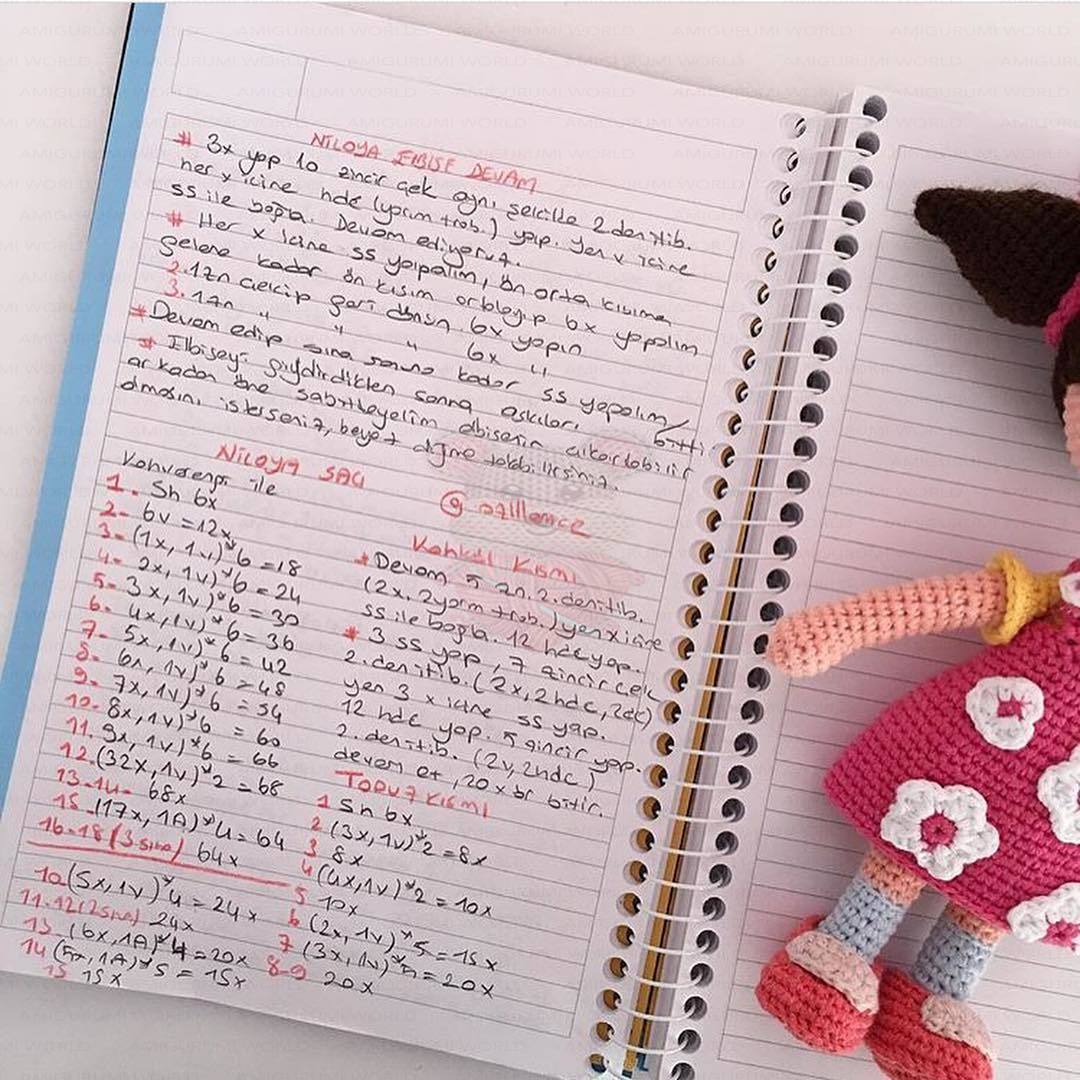 NİLOYA ELBİSE DEVAM
* 3x yap 10 zincir çek aynı şekilde 2 den itib.
her x içine hdc (yarım trab.) yap. Yan x içine
ss ile bağla. Devam ediyoruz.
* Her x içine ss yapalım, ön orta kısıma
gelene kadar ön kısım ortalayıp 6x yapalım
2. 1zn çekip geri dönün 6x yapın
3. 1zn " " " 6x "
* Devam edip sıra sonuna kadar ss yapalım / bitti
* Elbiseyi giydirdikten sonra askıları
arkadan öne sabitleyelim elbisenin çıkartılabilir
olmasını isterseniz, beyaz düğme takabilirsiniz.
NİLOYA SAÇ
Kahverengi ile
1. Sh 6x
2- 6v = 12x
3- (1x, 1v)*6 = 18
4- 2x, 1v)*6 = 24
5- 3x, 1v)*6 = 30
6. 4x, 1v)*6 = 36
7- 5x, 1v)*6 = 42
8- 6x, 1v)*6 = 48
9- 7x, 1v)*6 = 54
10- 8x, 1v)*6 = 60
11. 9x, 1v)*6 = 66
12. (32x, 1v)*2 = 68
13-14- 68x
15- (17x, 1A)*4 = 64
16-18 (3 sıra) 64x
10 (5x, 1v)*4 = 24x
11-12 (2 sıra) 24x
13- (6x, 1A)*4 = 20x
14 (5x, 1A)*5 = 15x
15 15x
Kahkül Kısmı
* Devam 5 zn. 2. den itib.
(2x, 2 yarım trab.) yan x içine
ss ile bağla. 12 hdc yap.
* 3 ss yap, 7 zincir çek
2. den itib. (2x, 2hdc, 2dc)
yan 3 x içine ss yap.
12 hdc yap. 5 zincir yap.
2. den itib. (2v, 2hdc)
devam et, 20x br bitir.
TOPUZ KISMI
1 Sh 6x
2 (3x, 1v)*2 = 8x
3 8x
4 (4x, 1v)*2 = 10x
5 10x
6 (2x, 1v)*5 = 15x
7 (3x, 1v)*5 = 20x
8-9 20x
AMIGURUMI WORLD